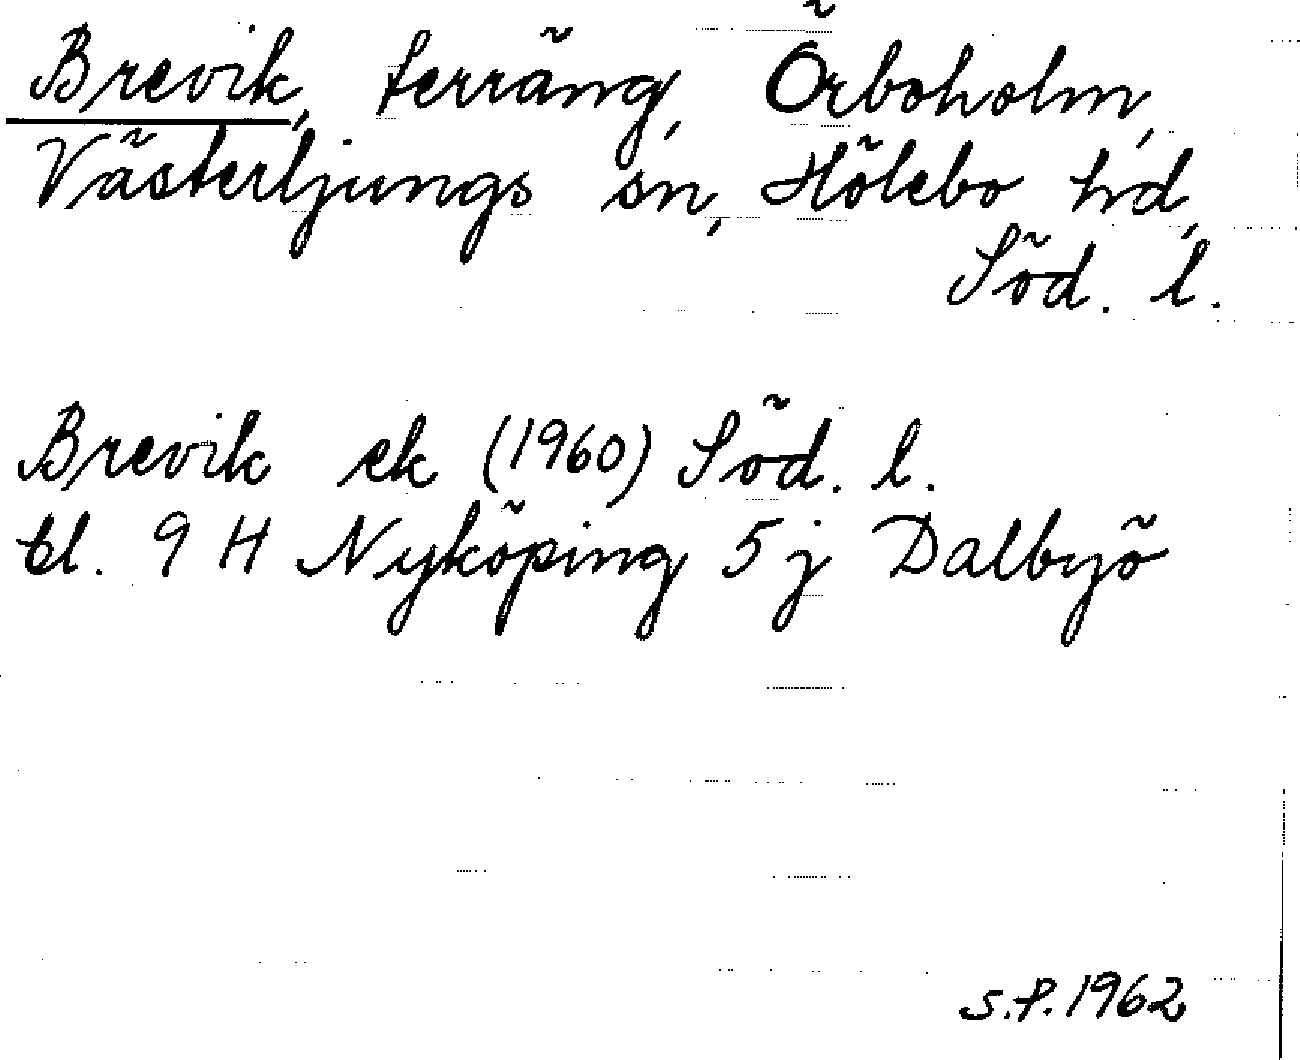 Brevik, terräng, Örboholm,
Västerljungs sn, Hölebo hd,
Söd. l.
Brevik ek (1960) Söd. l.
bl. 9 H Nyköping 5 j Dalbyö
S.P. 1962